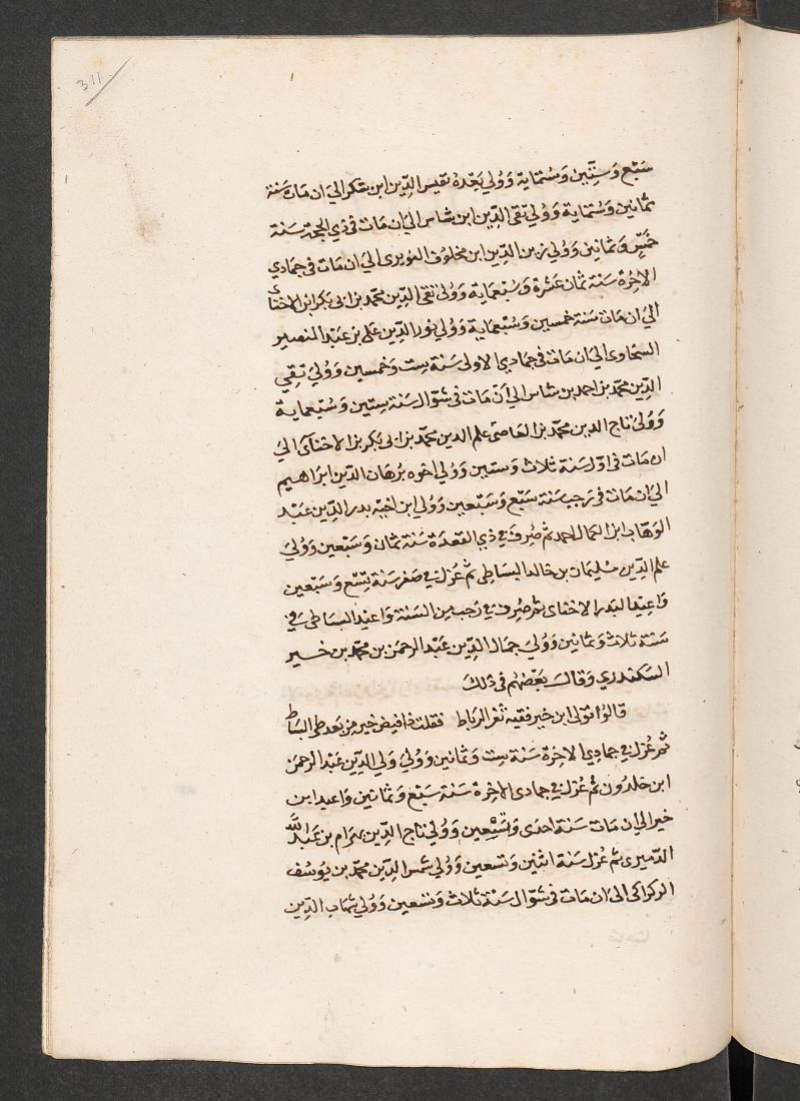 311
سَبْع وَسِتّين وَسُتماية وَوُلي بَعْدهُ نفيس الدِّين ابن شكر الي ان مَات سَنة
ثمانين وَسُتماية وَوُلي تقى الدِّين ابن شاس الي ان مَات فى ذي الحجة سَنة
خمسٍ وَثمانين وَوُلي زين الدِّين ابن مخلوف النويرى الي ان مَات فى جمادي
الاخِرة سَنة ثمان عَشرة وَسُبعماية وَوُلى تقى الدّين محمّد بن ابى بكر ابن الاخنائ
الي ان مَات سَنة خمسين وَسُبعماية وَوُلي نور الدِّين على بن عَبْد المنصير
السخاوى الي ان مَات فى جمادي الاولى سَنة سِت وَخمسين وَوُليَ تقي
الدِّين محمّد بن احمد بن شاس الي اَن مَات فى شوّال سَنة سِتين وَسُبعماية
وَوُلىَ تاج الدين محمّد بن القاضى علم الدين محمّد بن ابى بكر بن الاخنائ اليَ
ان مَات فى اوّل سَنة ثلاث وَستين وَوُلي اخوه بُرهَان الدِّين ابرَاهيم
الي ان مَات فى رَجب سَنة سَبْع وَسَبْعين وَوُلي ابن اخيْه بدر الدِّين عَبْد
الوَهَّاب ابن الكمال احمد ثم صُرِفَ في ذي القعدَة سَنة ثمان وَسَبْعين وَوُليَ
علم الدِّين سليمان بن خالد البسَاطِي ثم عُزل في صَفر سَنة تِسْع وَسَبْعين
وَاعِيْد البَدر الاخنائ ثم صُرِف في رَجب مِن السَّنة وَاعيد البسَاطى فى
سَنة ثلاث وَثمانين وَوُليَ جمَال الدِّين عَبْد الرحمَن بن محمّد بن خير
السكندري وَقالَ بَعْضهُم فى ذلكَ
قالوا تولى ابن خير فقيه ثغر الرباط فقلت ذا فيض خير من بعد طى البسَاط
ثم عُزل في جمادي الاخرة سَنة سِت وَثمانين وَوُليَ وَلي الدِّين عَبْد الرحمَن
ابن خلدُون ثم عُزل في جمادى الاخِرة سَنة سَبْع وَثمانين وَاعيد ابن
خير الي ان مَات سَنة احدَى وَتسْعِين وَوُلي تاج الدِّين بهرَام بن عَبْد اللَّه
الدَّميرى ثم عُزل سَنة اثنين وَتسعين وَوُلي شمس الدِّين محمّد بن يوُسُف
الركراكى الىَ ان مَات فى شوّال سَنة ثلاث وَتسْعين وَوُلي شهَاب الدِّين